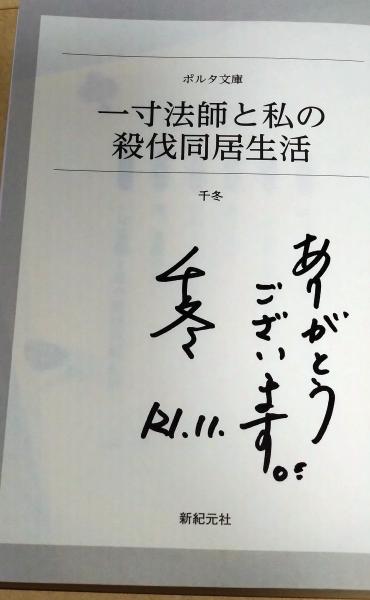 ポルタ文庫
一寸法師と私の
殺伐同居生活
千冬
ありがとう
ございます。
千冬
R1.11.
新紀元社